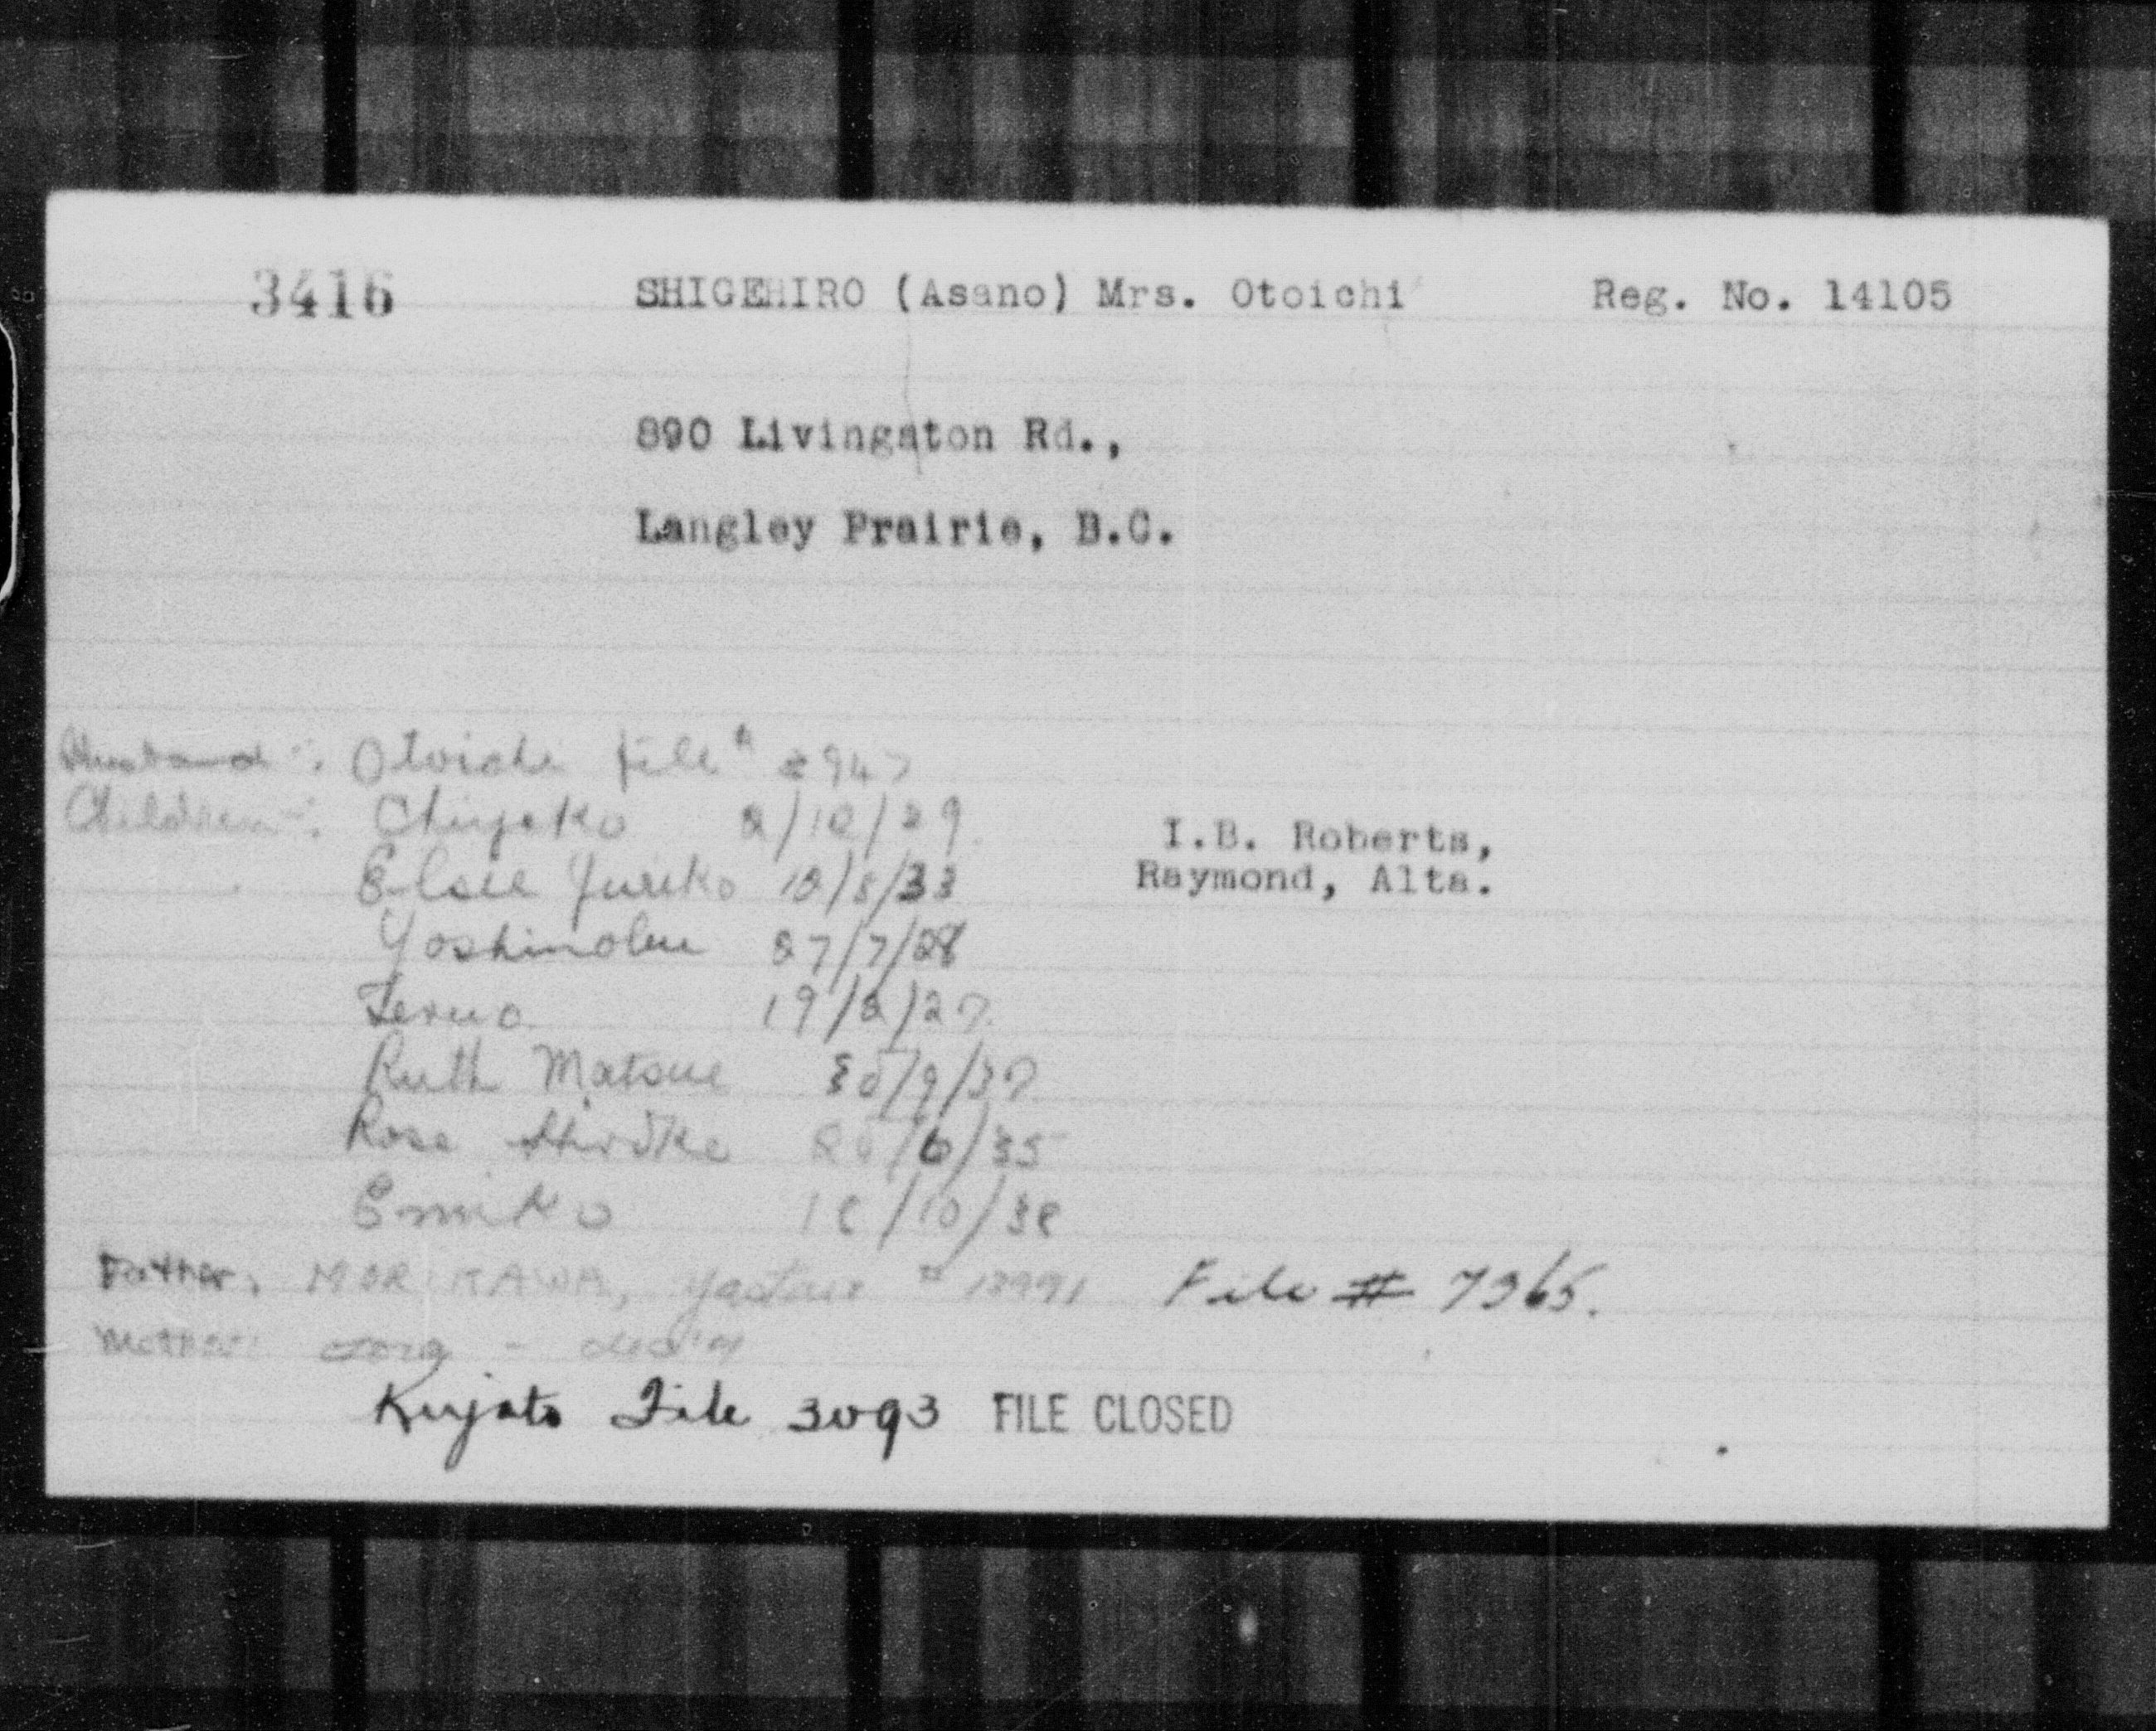 3416 SHIGEHIRO (Asano) Mrs. Otoichi Reg. No. 14105
890 Livingston Rd.,
Langley Prairie, B.C.
Husband: Otoichi file #
Children: Chiyeko /29
I.B. Roberts,
Elsie Yuriko /33
Raymond, Alta.
Yoshinobu 27/7/28
Teruo 19/2/27
Ruth Matsue 30/9/37
Rose 20/6/35
Emiko /10/38
Father: MORIKAWA, File # 7365.
Mother: dead
File 3093 FILE CLOSED